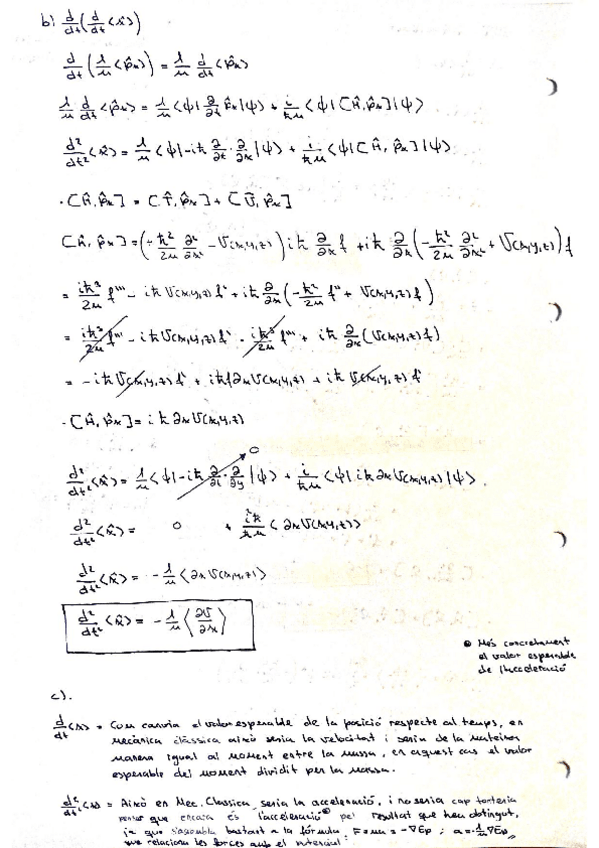 b) d/dt (d/dt <x̂>)
d/dt (1/μ <p̂x>) = 1/μ d/dt <p̂x>
1/μ d/dt <p̂x> = 1/μ <ψ| ∂/∂t p̂x |ψ> + i/ħμ <ψ| [Ĥ, p̂x] |ψ>
d²/dt² <x̂> = 1/μ <ψ| -iħ ∂/∂t · ∂/∂x |ψ> + i/ħμ <ψ| [Ĥ, p̂x] |ψ>
· [Ĥ, p̂x] = [T̂, p̂x] + [Û, p̂x]
[Ĥ, p̂x] = (+ħ²/2μ ∂²/∂x² - V(x,y,z)) iħ ∂/∂x f + iħ ∂/∂x (-ħ²/2μ ∂²/∂x² + V(x,y,z)) f
= iħ³/2μ f''' - iħ V(x,y,z) f' + iħ ∂/∂x (-ħ²/2μ f'' + V(x,y,z) f)
= iħ³/2μ f''' - iħ V(x,y,z) f' - iħ³/2μ f''' + iħ ∂/∂x (V(x,y,z) f)
= -iħ V(x,y,z) f' + iħ f ∂x V(x,y,z) + iħ V(x,y,z) f'
· [Ĥ, p̂x] = iħ ∂x V(x,y,z)
0
d²/dt² <x̂> = 1/μ <ψ| -iħ ∂/∂t · ∂/∂y |ψ> + i/ħμ <ψ| iħ ∂x V(x,y,z) |ψ>.
d²/dt² <x̂> = 0 + i²ħ/ħμ < ∂x V(x,y,z) >
d²/dt² <x̂> = -1/μ < ∂x V(x,y,z) >
d²/dt² <x̂> = -1/μ < ∂V/∂x >
Més concretament
el valor esperable
de l'acceleració
c).
d/dt <x> = Com canvia el valor esperable de la posició respecte al temps, en
mecànica clàssica això seria la velocitat i seria de la mateixa
manera igual al moment entre la massa, en aquest cas el valor
esperable del moment dividit per la massa.
d²/dt² <x> = Això en Mec. Classica seria la acceleració, i no seria cap tonteria
pensar que encara és l'acceleració pel resultat que hem obtingut,
ja que s'assembla bastant a la fórmula F = ma = -∇Ep ; a = -1/μ ∇Ep,
que relaciona les forces amb el potencial.